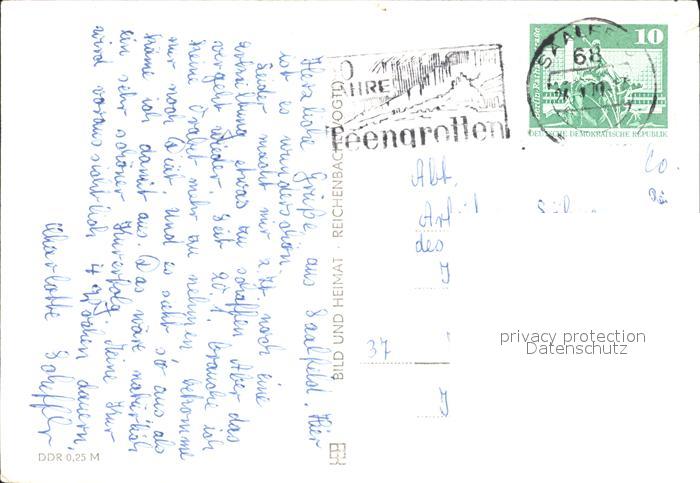 Herzliche Grüße aus Saalfeld. Hier
ist es wunderschön.
Leider macht mir z. Zt. noch eine
Erkältung etwas zu schaffen. Aber das
vergeht wieder. Seit brauche ich
keine mehr zu nehmen bekomme
nur noch und es sieht so aus als
käme ich damit aus. Das wäre natürlich
ein sehr schöner Kurerfolg. Meine Kur
wird voraussichtlich 4 Wochen dauern.
Charlotte Scheffler
DDR 0,25 M
BILD UND HEIMAT · REICHENBACH (VOGTL)
JAHRE
Feengrotten
SAALFELD
68
10
Berlin Rathausstraße
DEUTSCHE DEMOKRATISCHE REPUBLIK
Co.
Abt.
des
J
37
J
privacy protection
Datenschutz